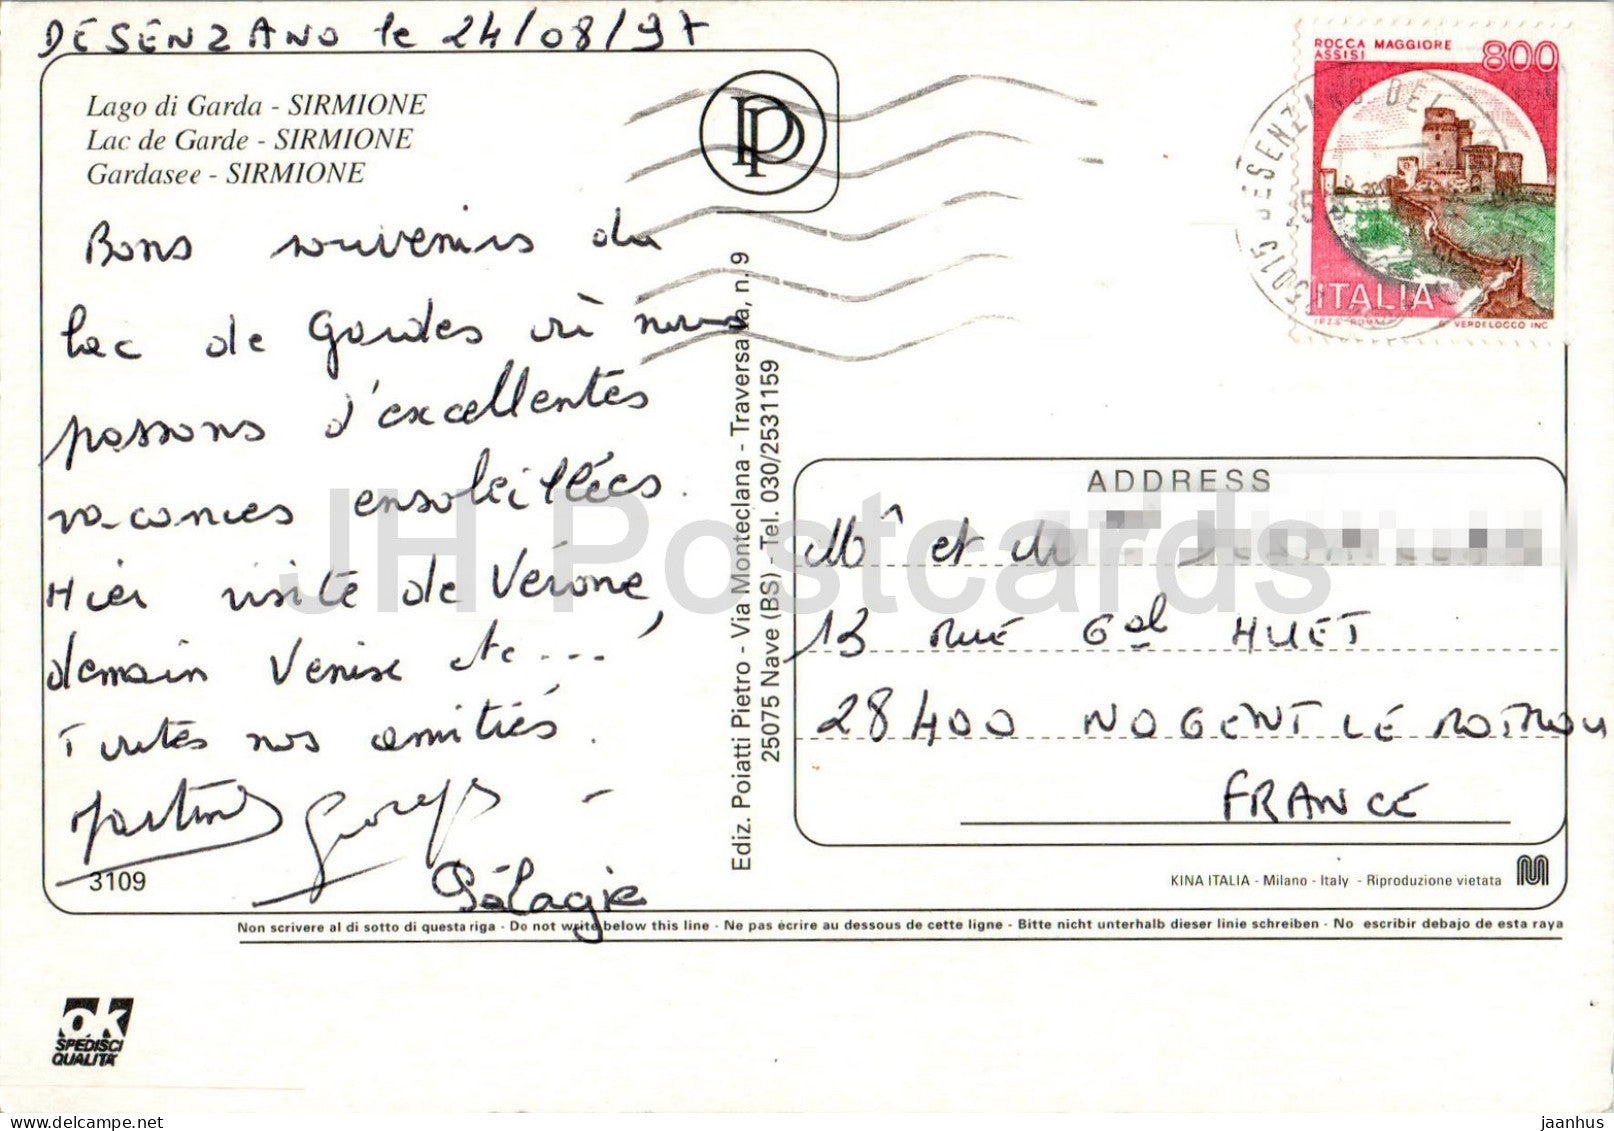 DESENZANO le 24/08/97
Lago di Garda - SIRMIONE
Lac de Garde - SIRMIONE
Gardasee - SIRMIONE
Bons souvenirs du
lac de Gardes où nous
passons d'excellentes
vacances ensoleillées.
Hier visite de Vérone,
demain Venise etc...
Toutes nos amitiés.
Martine Georges
Pélagie
3109
PP
Ediz. Poiatti Pietro - Via Monteclana - Traversa va, n. 9
25075 Nave (BS) - Tel. 030/2531159
ROCCA MAGGIORE
ASSISI
800
ITALIA
I.P.Z.S. ROMA
G. VERDELOCCO INC.
25015 DESENZANO DEL
ADDRESS
Mr et Me
13 RUE Gal HUET
28400 NOGENT LE ROTROU
FRANCE
KINA ITALIA - Milano - Italy - Riproduzione vietata
Non scrivere al di sotto di questa riga - Do not write below this line - Ne pas écrire au dessous de cette ligne - Bitte nicht unterhalb dieser linie schreiben - No escribir debajo de esta raya
ok
SPEDISCI
QUALITÀ
JH Postcards
delcampe.net
jaanhus